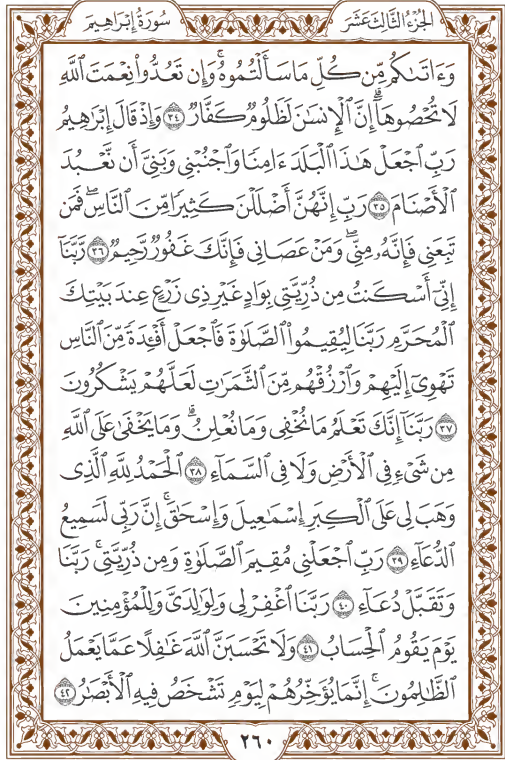 سُورَةُ إِبْرَاهِيم
الجُزْءُ الثَّالِثَ عَشَرَ
وَءَاتَىٰكُم مِّن كُلِّ مَا سَأَلْتُمُوهُ ۚ وَإِن تَعُدُّوا۟ نِعْمَتَ ٱللَّهِ
لَا تُحْصُوهَآ ۗ إِنَّ ٱلْإِنسَـٰنَ لَظَلُومٌ كَفَّارٌ ٣٤ وَإِذْ قَالَ إِبْرَٰهِيمُ
رَبِّ ٱجْعَلْ هَـٰذَا ٱلْبَلَدَ ءَامِنًا وَٱجْنُبْنِى وَبَنِىَّ أَن نَّعْبُدَ
ٱلْأَصْنَامَ ٣٥ رَبِّ إِنَّهُنَّ أَضْلَلْنَ كَثِيرًا مِّنَ ٱلنَّاسِ ۖ فَمَن
تَبِعَنِى فَإِنَّهُۥ مِنِّى ۖ وَمَنْ عَصَانِى فَإِنَّكَ غَفُورٌ رَّحِيمٌ ٣٦ رَّبَّنَآ
إِنِّىٓ أَسْكَنتُ مِن ذُرِّيَّتِى بِوَادٍ غَيْرِ ذِى زَرْعٍ عِندَ بَيْتِكَ
ٱلْمُحَرَّمِ رَبَّنَا لِيُقِيمُوا۟ ٱلصَّلَوٰةَ فَٱجْعَلْ أَفْـِٔدَةً مِّنَ ٱلنَّاسِ
تَهْوِىٓ إِلَيْهِمْ وَٱرْزُقْهُم مِّنَ ٱلثَّمَرَٰتِ لَعَلَّهُمْ يَشْكُرُونَ
٣٧ رَبَّنَآ إِنَّكَ تَعْلَمُ مَا نُخْفِى وَمَا نُعْلِنُ ۗ وَمَا يَخْفَىٰ عَلَى ٱللَّهِ
مِن شَىْءٍ فِى ٱلْأَرْضِ وَلَا فِى ٱلسَّمَآءِ ٣٨ ٱلْحَمْدُ لِلَّهِ ٱلَّذِى
وَهَبَ لِى عَلَى ٱلْكِبَرِ إِسْمَـٰعِيلَ وَإِسْحَـٰقَ ۚ إِنَّ رَبِّى لَسَمِيعُ
ٱلدُّعَآءِ ٣٩ رَبِّ ٱجْعَلْنِى مُقِيمَ ٱلصَّلَوٰةِ وَمِن ذُرِّيَّتِى ۚ رَبَّنَا
وَتَقَبَّلْ دُعَآءِ ٤٠ رَبَّنَا ٱغْفِرْ لِى وَلِوَٰلِدَىَّ وَلِلْمُؤْمِنِينَ
يَوْمَ يَقُومُ ٱلْحِسَابُ ٤١ وَلَا تَحْسَبَنَّ ٱللَّهَ غَـٰفِلًا عَمَّا يَعْمَلُ
ٱلظَّـٰلِمُونَ ۚ إِنَّمَا يُؤَخِّرُهُمْ لِيَوْمٍ تَشْخَصُ فِيهِ ٱلْأَبْصَـٰرُ ٤٢
٢٦٠